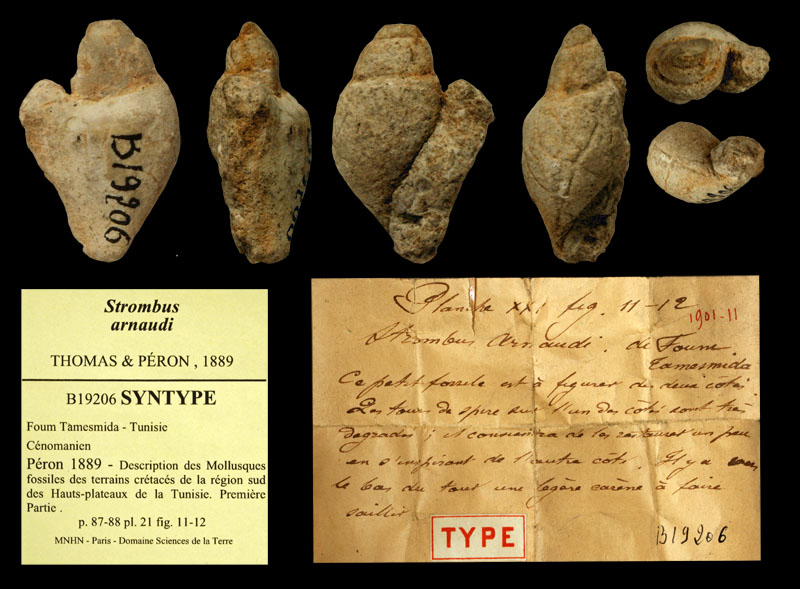 B19206
Strombus
arnaudi
THOMAS & PÉRON , 1889
B19206 SYNTYPE
Foum Tamesmida - Tunisie
Cénomanien
Péron 1889 - Description des Mollusques
fossiles des terrains crétacés de la région sud
des Hauts-plateaux de la Tunisie. Première
Partie .
p. 87-88 pl. 21 fig. 11-12
MNHN - Paris - Domaine Sciences de la Terre
Planche XXI fig. 11-12
1901-11
Strombus Arnaudi. de Foum
Tamesmida
Ce petit fossile est à figurer des deux côtés.
Les tours de spire sur l'un des côtés sont très
dégradés ; il conviendra de les restaurer un peu
en s'inspirant de l'autre côté. Il y a vers
le bas du tour une légère carène à faire
saillir
TYPE
B19206